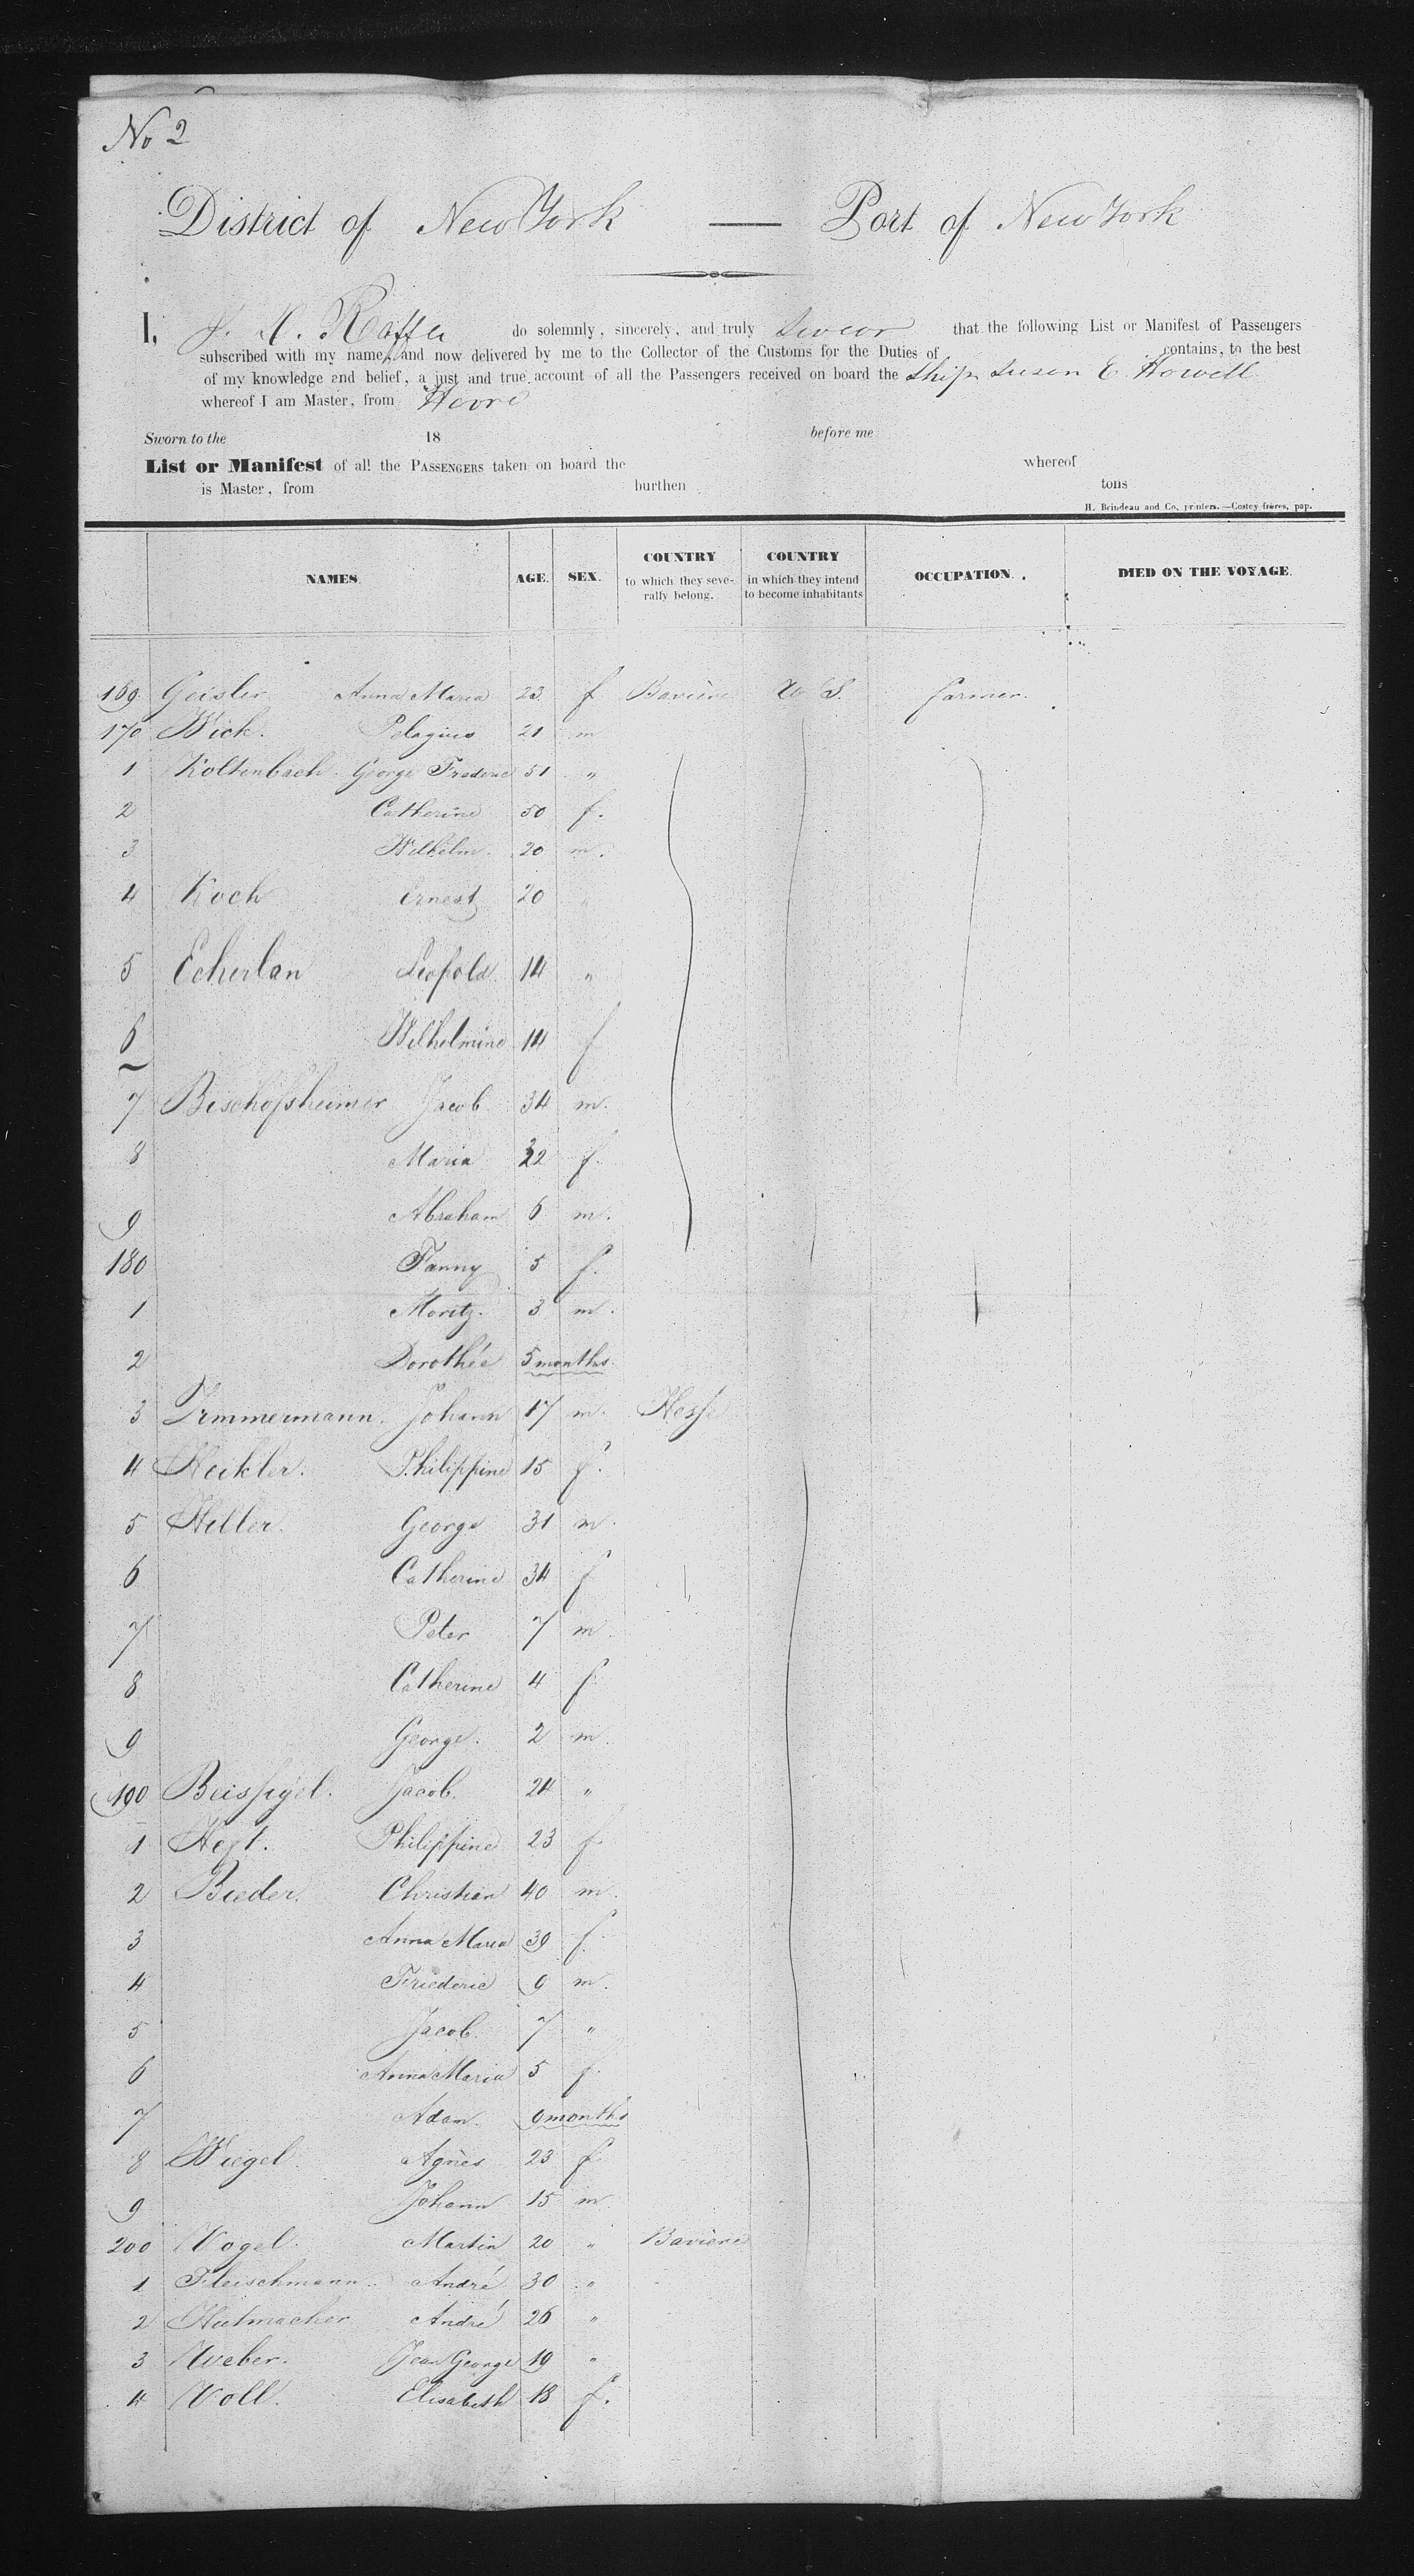 No 2
District of New York — Port of New York
I, do solemnly, sincerely, and truly swear that the following List or Manifest of Passengers
subscribed with my name, and now delivered by me to the Collector of the Customs for the Duties of contains, to the best
of my knowledge and belief, a just and true account of all the Passengers received on board the Ship Susan E. Howell
whereof I am Master, from Havre
Sworn to the 18 before me
List or Manifest of all the PASSENGERS taken on board the whereof
is Master, from burthen tons
H. Brindeau and Co, printers.—Costey frères, pap.
NAMES. AGE. SEX. COUNTRY to which they seve- rally belong. COUNTRY in which they intend to become inhabitants OCCUPATION. DIED ON THE VOYAGE.
169 Geisler Anna Maria 23 f Bavière U S. farmer.
170 Wick. Pelagius 21 m
1 Koltenbach George Frederic 51 "
2 Catherine 50 f.
3 Wilhelm. 20 m.
4 Koch Ernest 20 "
5 Echerlan Leopold 14 "
6 Wilhelmine 14 f
7 Bischofsheimer Jacob 34 m.
8 Maria 32 f.
9 Abraham 6 m.
180 Fanny 5 f.
1 Moritz. 3 m.
2 Dorothée 5 months
3 Zimmermann. Johann 17 m. Hesse
4 Heikler. Philippine 15 f.
5 Heller. George 31 m.
6 Catherine 34 f
7 Peter 7 m.
8 Catherine 4 f
9 George. 2 m.
190 Beissigel. Jacob. 24 "
1 Philippine 23 f
2 Bieder. Christian 40 m.
3 Anna Maria 39 f.
4 Friederic 9 m.
5 Jacob 7 "
6 Anna Maria 5 f.
7 Adam. 9 months
8 Wiegel. Agnès 23 f
9 Johann 15 m.
200 Vogel. Martin 20 " Bavière
1 Fleischmann. André 30 "
2 Hutmacher André 26 "
3 Weber. Jean George 19 "
4 Voll. Elisabeth 18 f.